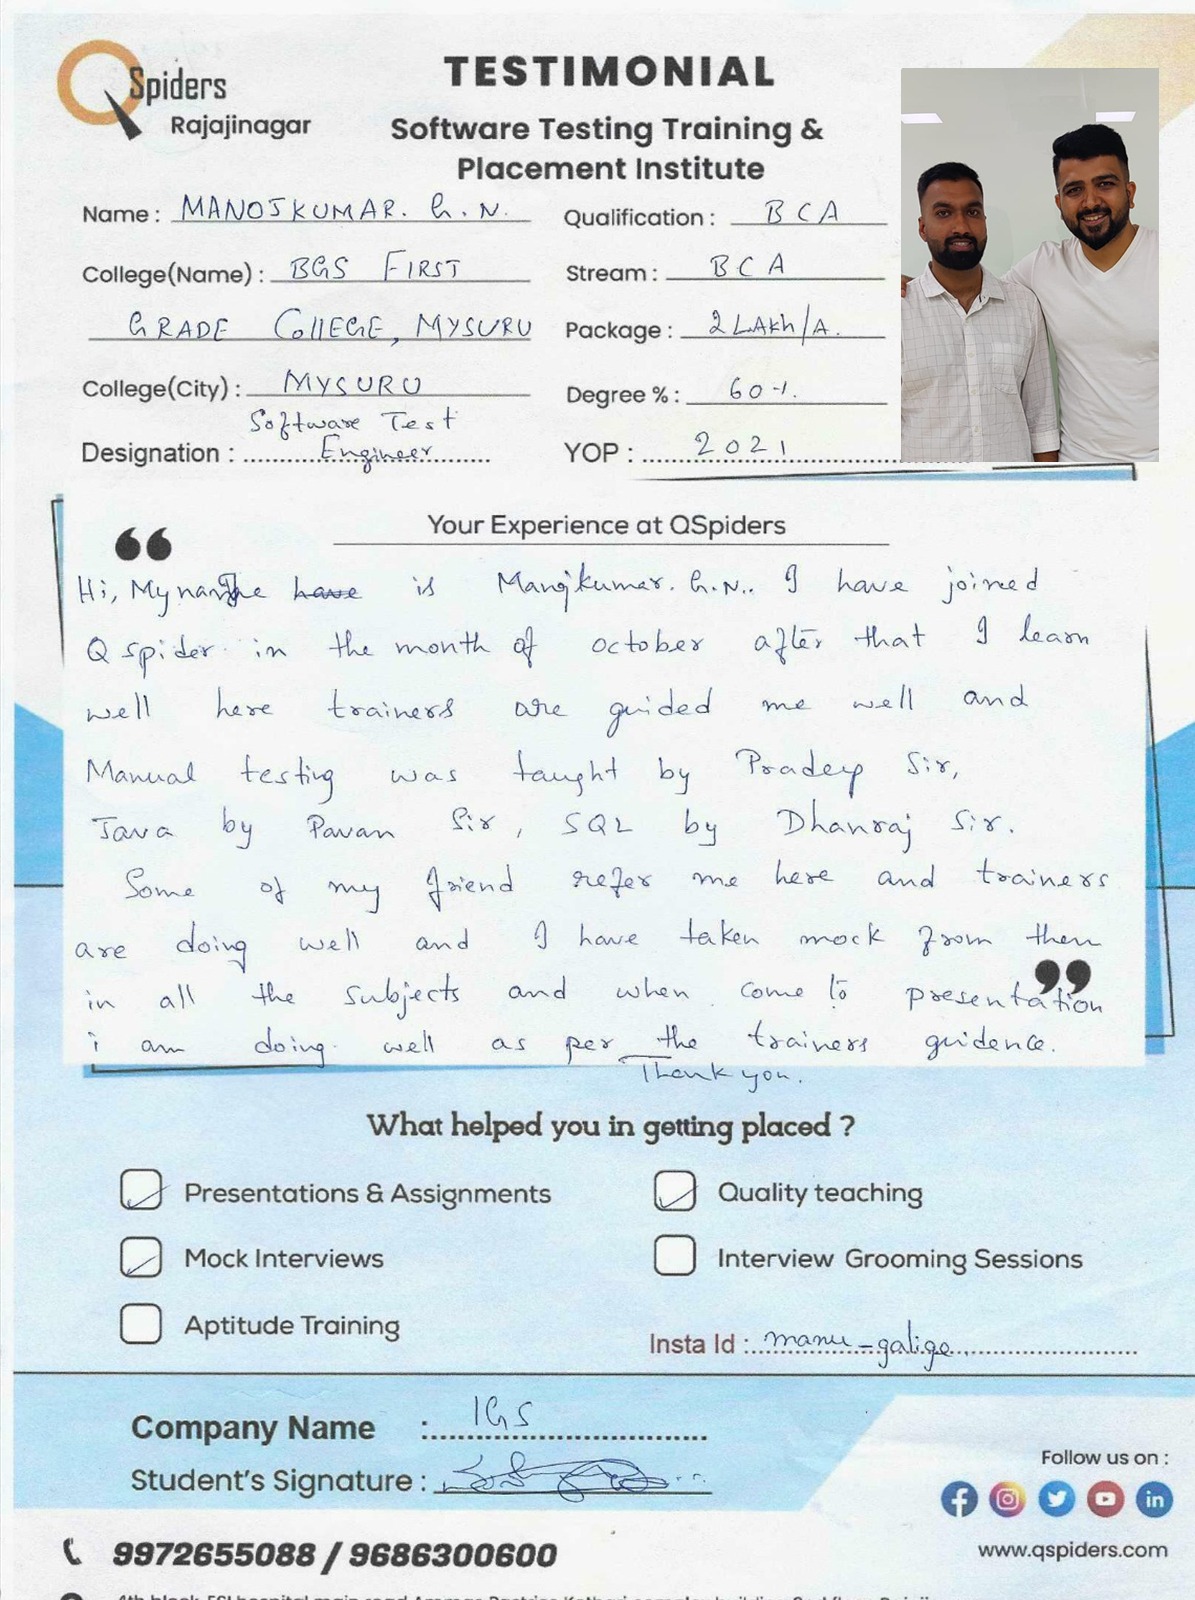 QSpiders
Rajajinagar
TESTIMONIAL
Software Testing Training &
Placement Institute
Name : MANOJKUMAR. G. N.
Qualification : BCA
College(Name) : BGS FIRST
Stream : BCA
GRADE COllEGE, MYSURU
Package : 2 LAkh/A.
College(City) : MYSURU
Degree % : 60%
Software Test
Designation : Engineer
YOP : 2021
Your Experience at QSpiders
Hi, My name have is Manojkumar. G.N.. I have joined
Q spider in the month of october after that I learn
well here trainers are guided me well and
Manual testing was taught by Pradeep Sir,
Java by Pavan Sir, SQL by Dhanraj Sir.
Some of my friend refer me here and trainers
are doing well and I have taken mock from them
in all the subjects and when come to presentation
i am doing well as per the trainers guidence.
Thank you.
What helped you in getting placed ?
Presentations & Assignments
Quality teaching
Mock Interviews
Interview Grooming Sessions
Aptitude Training
Insta Id : manu-galige
Company Name : IGS
Student's Signature :
Follow us on :
9972655088 / 9686300600
www.qspiders.com